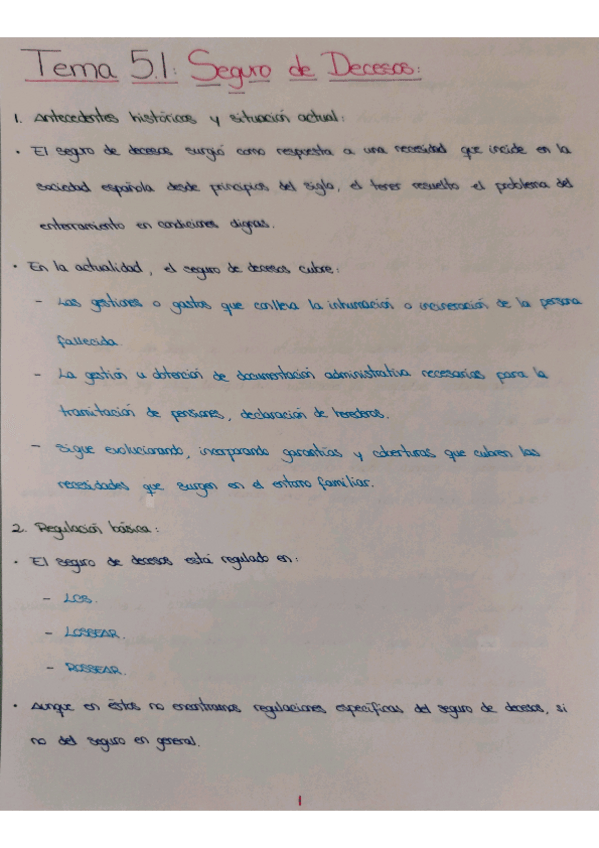 Tema 5.1: Seguro de Decesos:
1. Antecedentes históricos y situación actual:
• El seguro de decesos surgió como respuesta a una necesidad que incide en la
sociedad española desde principios del siglo, el tener resuelto el problema del
enterramiento en condiciones dignas.
• En la actualidad, el seguro de decesos cubre:
- Las gestiones o gastos que conlleva la inhumación o incineración de la persona
fallecida.
- La gestión u obtención de documentación administrativa necesarias para la
tramitación de pensiones, declaración de herederos.
- Sigue evolucionando, incorporando garantías y coberturas que cubren las
necesidades que surgen en el entorno familiar.
2. Regulación básica:
• El seguro de decesos está regulado en:
- LCS.
- LOSSEAR.
- ROSSEAR.
• Aunque en éstos no encontramos regulaciones específicas del seguro de decesos, si
no del seguro en general.
1